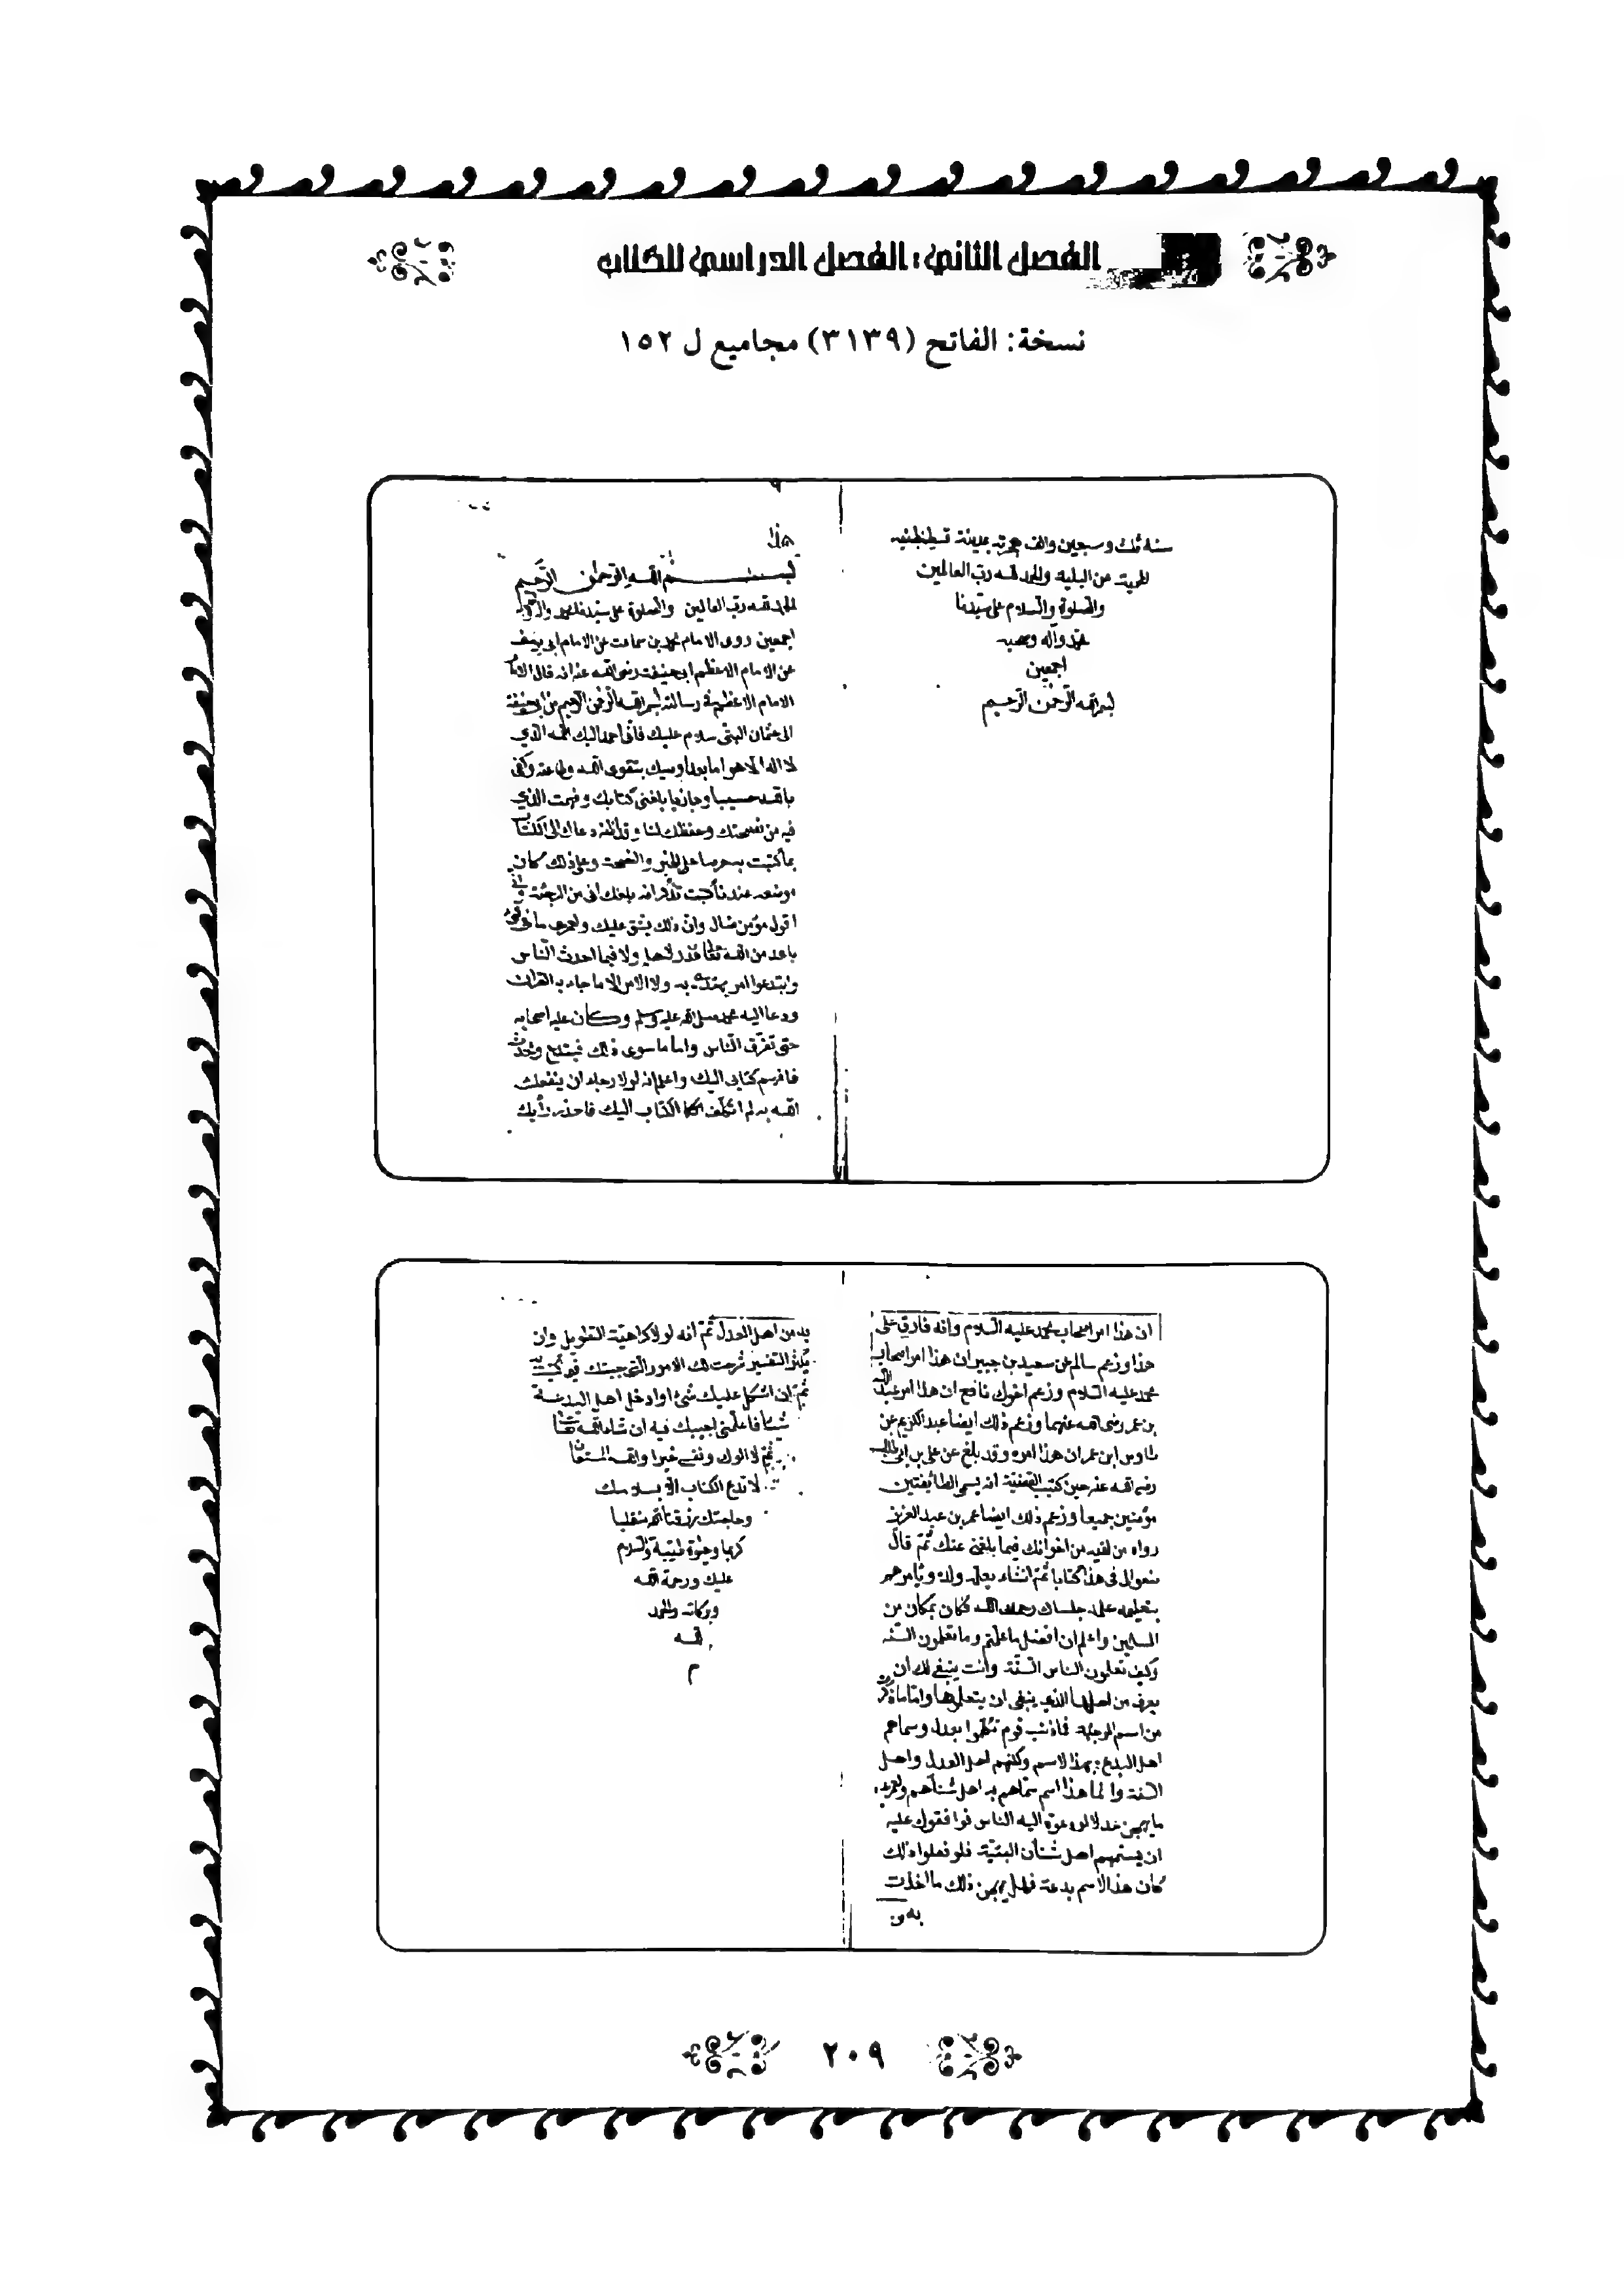 الفصل الثاني: الفصل الدراسي للكتاب
نسخة: الفاتح (٣١٣٩) مجاميع ل ١٥٢
سنة ثلث وسبعين والف هجرته بمدينة قسطنطنيه
المحمية من البلية والحمد لله رب العالمين
والصلوة والسلام على سيدنا
محمد وآله وصحبه
اجمعين
بسم الله الرحمن الرحيم
بسم الله الرحمن الرحيم
الحمد لله رب العالمين والصلوة على سيدنا محمد وآله
اجمعين روى الامام محمد بن سماعة عن الامام ابى يوسف
عن الامام الاعظم ابى حنيفة رضى الله عنه انه قال
الامام الاعظم في رسالته بسم الله الرحمن الرحيم من ابى حنيفة
الى عثمان البتى سلام عليك فانى احمد اليك الله الذي
لا اله الا هو اما بعد اوصيك بتقوى الله وطاعته وكفى
بالله حسيبا وجازيا بلغنى كتابك وفهمت الذي
فيه من نصيحتك وحفظك لنا وقد دعاك الى الكتاب
بما كتبت به حرصا على الخير والنصيحة وعلى ذلك كان
موضعه عندنا كتبت تذكر انه بلغك انى من المرجئة وانى
اقول مؤمن ضال وان ذلك يشق عليك ولعمرى ما فى شئ
باعد من الله تعالى عذر لاهله ولا فيما احدث الناس
وابتدعوا امر يهتدى به ولا الامر الا ما جاء به القران
ودعا اليه محمد صلى الله عليه وسلم وكان عليه اصحابه
حتى تفرق الناس واما ما سوى ذلك فمبتدع ومحدث
فافهم كتابى اليك واعلم انه لولا رجاء ان ينفعك
الله به لم اتكلف الكتاب اليك فاحذر رأيك
ان هذا امر اصحاب محمد عليه السلام وانه فارق على
هذا وزعم سالم عن سعيد بن جبير ان هذا امر اصحاب
محمد عليه السلام وزعم اخوك نافع ان هذا امر عبد الله
بن عمر رضى الله عنهما وزعم ذلك ايضا عبد الكريم عن
طاوس ابن عمر ان هذا امره وقد بلغ عن على بن ابى طالب
رضى الله عنه حين كتب القضية انه يسمى الطائفتين
مؤمنين جميعا وزعم ذلك ايضا عمر بن عبد العزيز
رواه من لقيه من اخوانك فيما بلغنى عنك ثم قال
ضعوا لى فى هذا كتابا ثم انشاء يعلمه ولده ويامرهم
بتعليمه علمه جلساك رحمك الله فكان بمكان من
المسلمين واعلم ان افضل ما علمتم وما تعلمون السنة
وكيف تعلمون الناس السنة وانت ينبغى لك ان
يعرف من اهلها الذي ينبغى ان يتعلمها واما ما ذكرت
من اسم المرجئة فما ذنب قوم تكلموا بعدل وسماهم
اهل البدع بهذا الاسم ولكنهم اهل العدل واهل
السنة وانما هذا اسم سماهم به اهل شنآنهم ولعمرى
ما يهجن عدلا لو دعوت اليه الناس فوافقوك عليه
ان يسميهم اهل شنأن البتية فلو فعلوا ذلك
كان هذا الاسم بدعة فهل يهجن ذلك ما اخذت
به من
به من اهل العدل ثم انه لولا كراهية التطويل وان
يكثر التفسير شرحت لك الامور التى
ثم ان اشكل عليك شئ او ادخل اهل البدعة
شيئا فاعلمنى اجيبك فيه ان شاء الله تعالى
ثم لا الوك ونفسى خيرا والله المستعان
لا تدع الكتاب الى بسلامك
وحاجتك رزقنا الله منقلبا
كريما وحيوة طيبة والسلام
عليك ورحمة الله
وبركاته والحمد
لله
م
٢٠٩